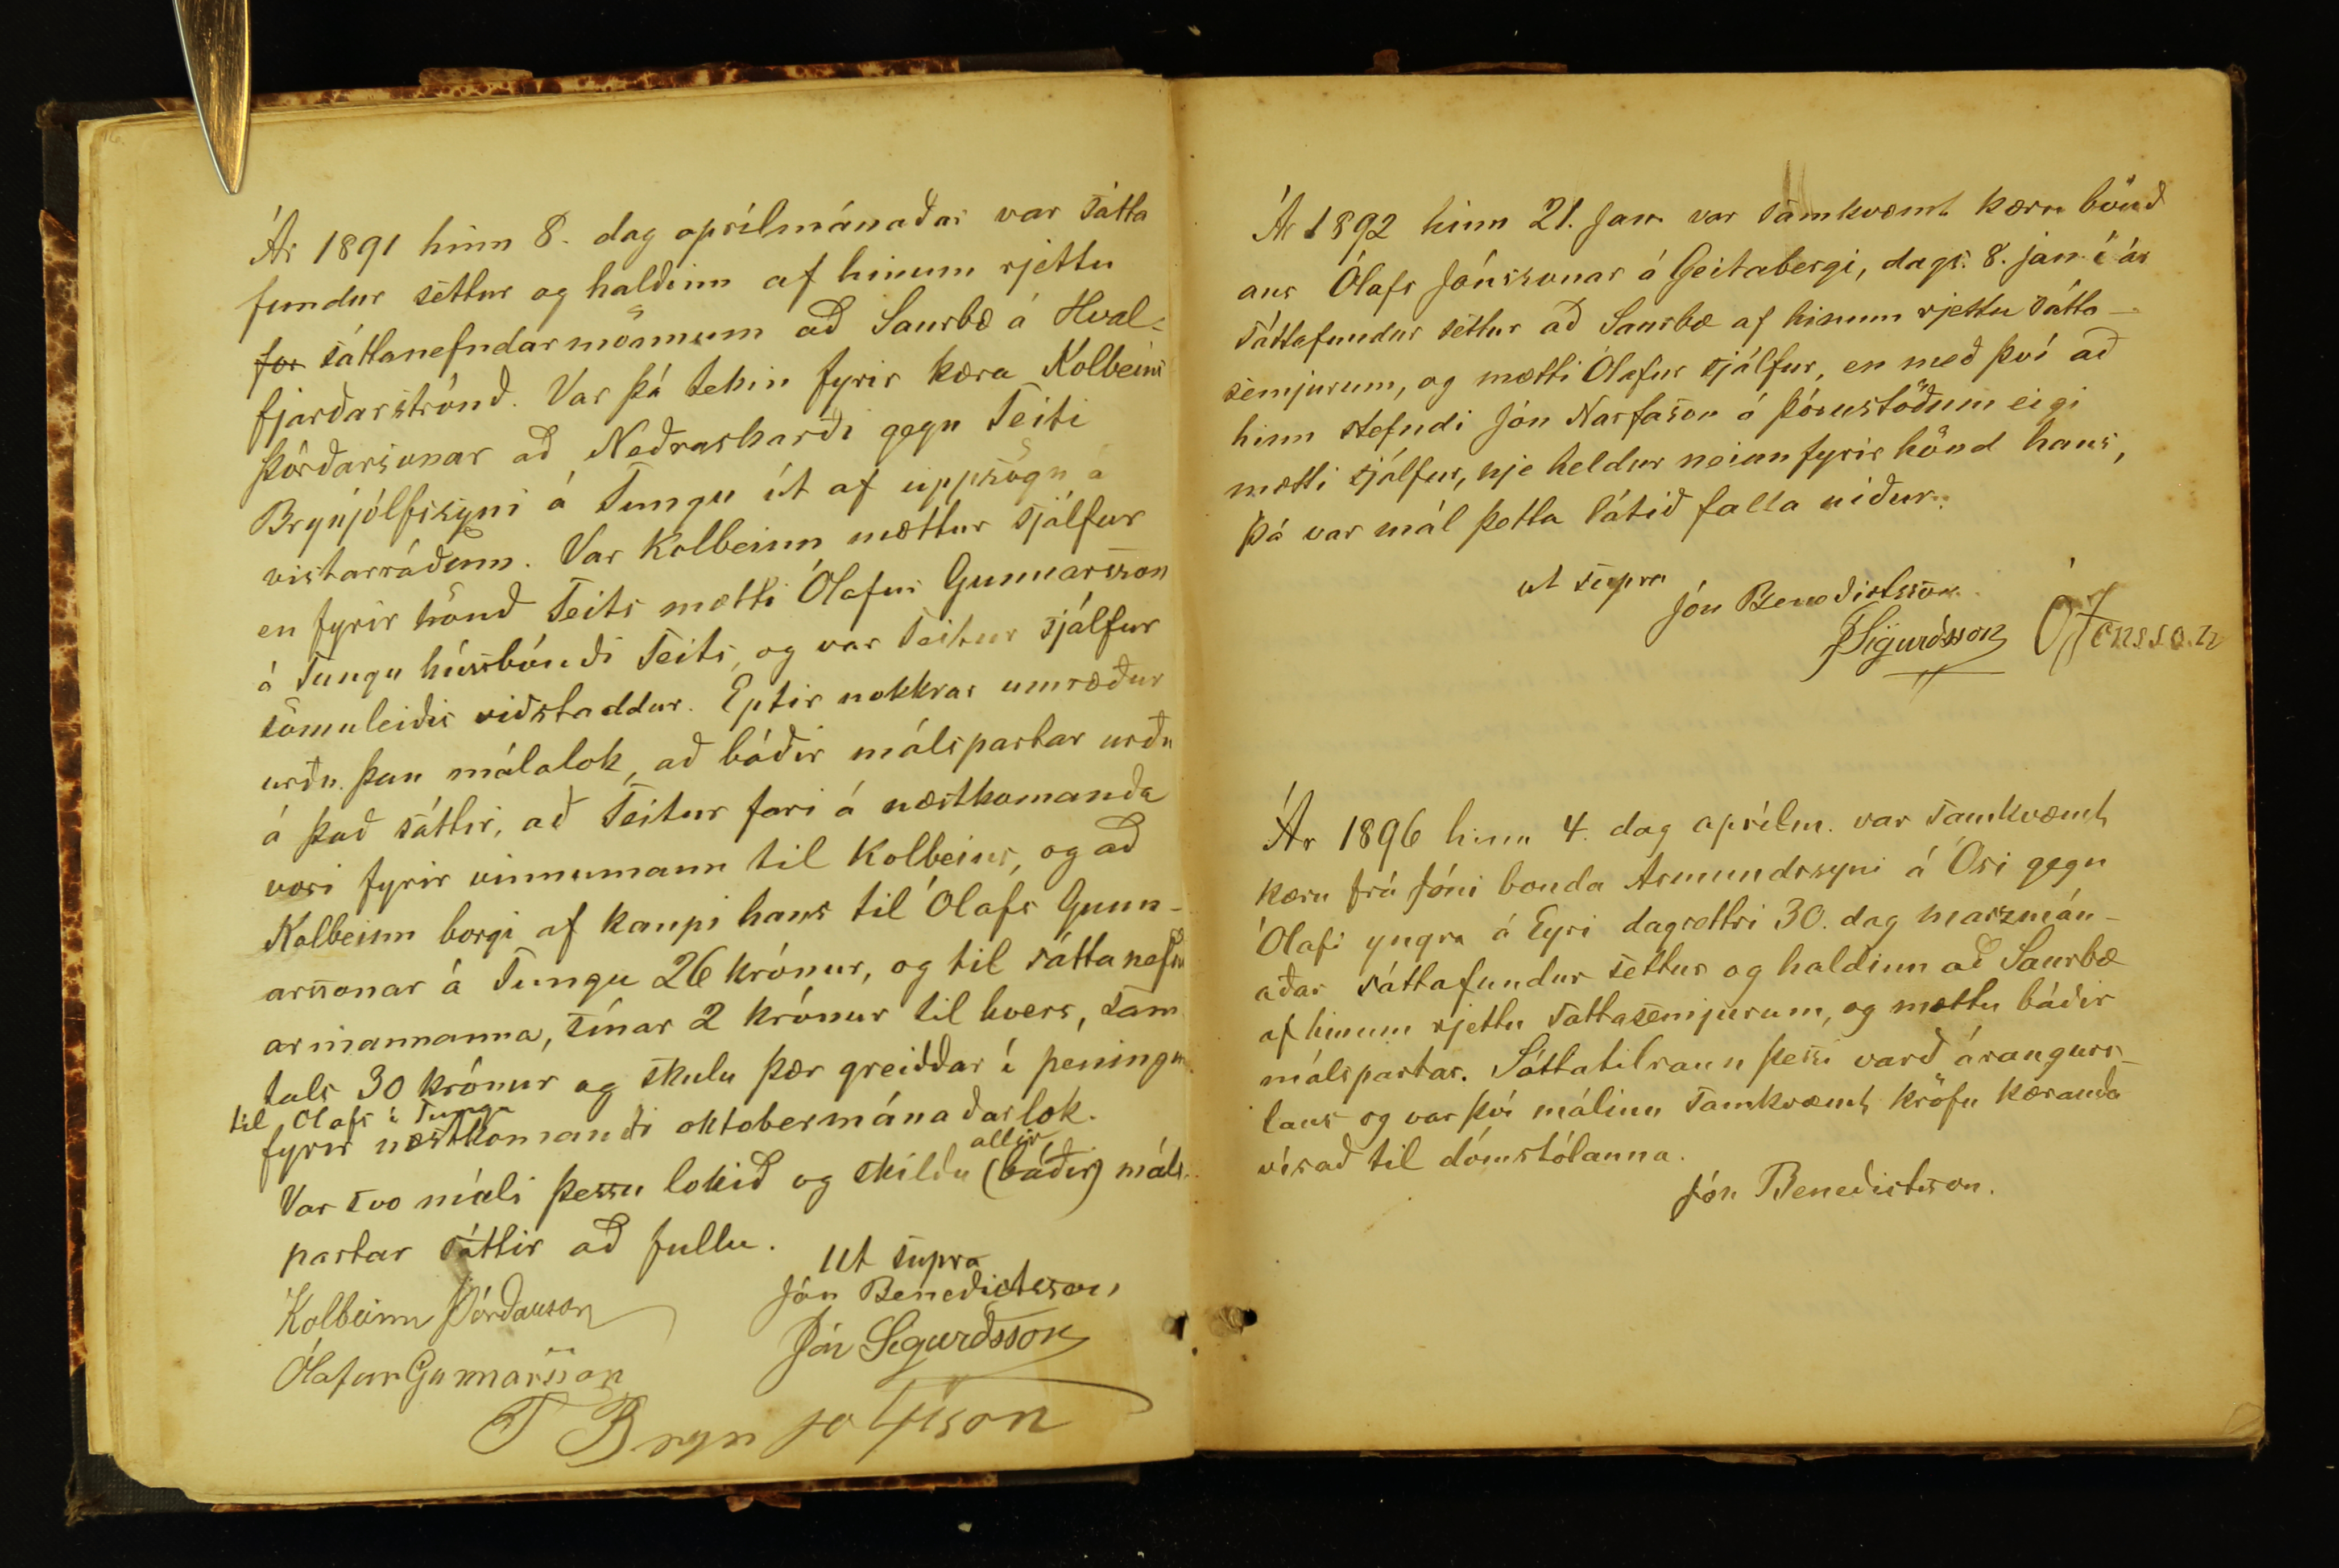 Ár 1891 hinn 8. dag aprílmánaðar var sátta
fundur settur og haldinn af hinum rjettu
for sáttanefndarmönnum að Saurbæ á Hval-
fjarðarströnd. Var þá tekin fyrir kæra Kolbeins
Þórðarsonar að Neðraskarði gegn Teiti
Brynjólfssyni á Tungu út af uppsögn á
vistarráðum. Var Kolbeinn mættur sjálfur
en fyrir hönd Teits mætti Ólafur Gunnarsson
á Tungu húsbóndi Teits, og var Teitur sjálfur
sömuleiðis viðstaddur. Eptir nokkrar umræður
urðu þau málalok, að báðir málspartar urðu
á það sáttir, að Teitur fari á næstkomanda
vori fyrir vinnumann til Kolbeins, og að
Kolbeinn borgi af kaupi hans til Ólafs Gunn-
arssonar á Tungu 26 krónur, og til sáttanefnd
armannanna, sínar 2 krónur til hvers, sam
tals 30 krónur og skulu þær greiddar í peningum
til Olafs í Tungu
fyrir næstkomandi oktobermánaðarlok.
allir
Var svo máli þessu lokið og skildu (báðir) máls
partar sáttir að fullu.
Ut supra
Kolbeinn Þórðarson
Jón Benedictsson
Jón Sigurðsson
Ólafur Gunnarsson
T Brynjolfsson
Ár 1892 hinn 21. Jan. var samkvæmt kæru bónd
ans Ólafs Jónssonar á Geitabergi, dags. 8. jan. í ár
sáttafundur settur að Saurbæ af hinum rjettu sátta-
semjurum, og mætti Ólafur sjálfur, en með því að
hinn stefndi Jón Narfason á Þórustöðum eigi
mætti sjálfur, nje heldur neinn fyrir hönd hans,
Þá var mál þetta látið falla niður.
ut supra
Jón Benedictsson
JSigurðsson Ó Jónsson
Ár 1896 hinn 4. dag aprílm. var samkvæmt
kæru frá Jóni bonda Asmundssyni á Ósi gegn
Ólafi yngra á Eyri dagsettri 30. dag marzmán-
aðar sáttafundur settur og haldinn að Saurbæ
af hinum rjettu sattasemjurum, og mættu báðir
málspartar. Sáttatilraun þessi varð árangurs-
laus og var því málinu samkvæmt kröfu kæranda
vísað til dómstólanna.
Jón Benedictsson.